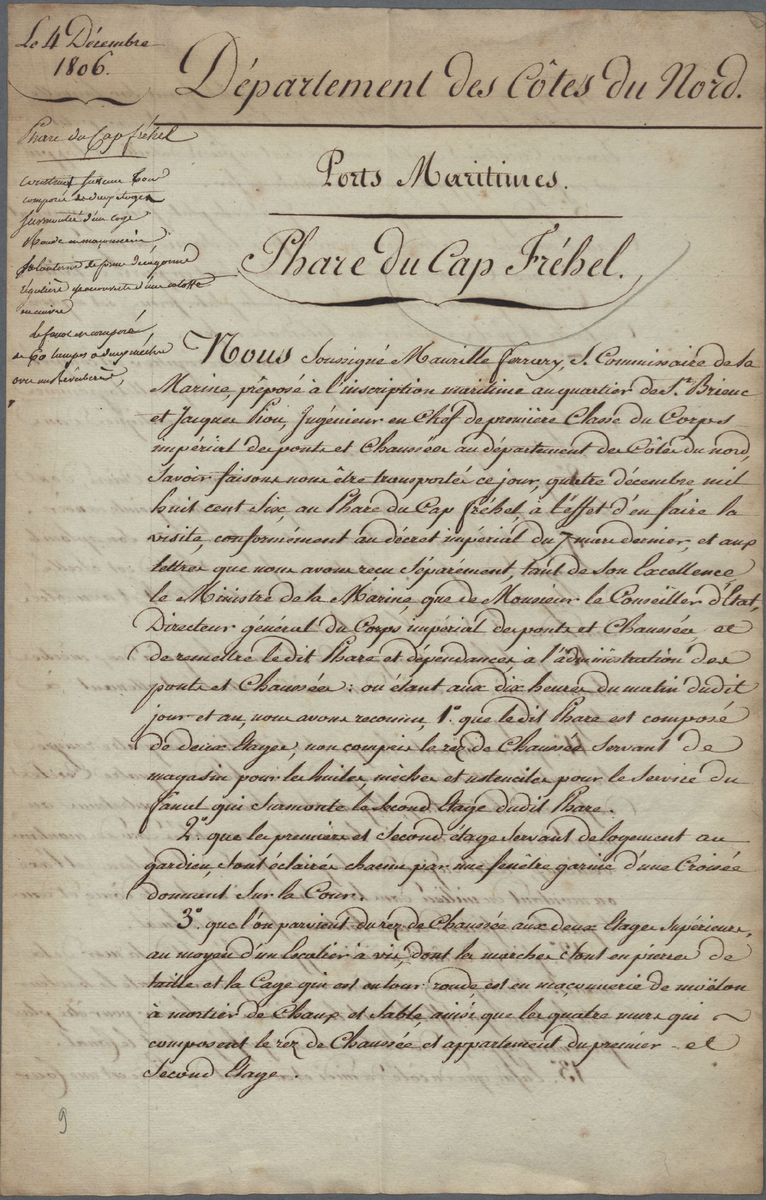 Le 4 Décembre
1806.
Département des Côtes du Nord.
Ports Maritimes.
Phare du Cap Fréhel.
Phare du Cap fréhel
construit sur une tour
composée de deux étages
surmontée d'une cage
Ronde en maçonnerie
sa lanterne de forme décagonne
régulière et couverte d'une calotte
en cuivre
le fanal est composé
de 60 lampes à deux mèches
avec un Réverbère,
Nous Soussigné Maurille ferrary, S. Commissaire de la
Marine, préposé à l'inscription maritime au quartier de St. Brieuc
et Jacques Piou, Ingénieur en Chef de première Classe du Corps
impérial des ponts et Chaussées au département des Côtes du nord,
Savoir faisons nous être transportés ce jour, quatre décembre mil
huit cent Six, au Phare du Cap fréhel, à l'effet d'en faire la
visite, conformément au décret impérial du 7 mars dernier, et aux
lettres que nous avons reçu Séparément, tant de Son Excellence
le Ministre de la Marine, que de Monsieur le Conseiller d'Etat,
Directeur général du Corps impérial des ponts et Chaussées, et
de remettre le dit Phare et dépendances à l'administration des
ponts et Chaussées : où étant aux dix heures du matin dudit
jour et an, nous avons reconnu, 1°. que le dit Phare est composé
de deux Etages, non compris le rez de Chaussée Servant de
magasin pour les huiles mèches et ustenciles pour le Service du
fanal qui Surmonte le Second Etage dudit Phare.
2°. que les premier et Second étage Servant de logement au
gardien, Sont éclairés chacun par une fenêtre garnie d'une Croisée
donnant Sur la Cour.
3°. que l'on parvient du rez de Chaussée aux deux Etages Supérieurs,
au moyen d'un Escalier à vis, dont les marches Sont en pierres de
taille et la Cage qui est en tour ronde est en maçonnerie de moëlon
à mortier de Chaux et Sable ainsi que les quatre murs qui
composent le rez de Chaussée et appartement du premier et
Second Etage.
9